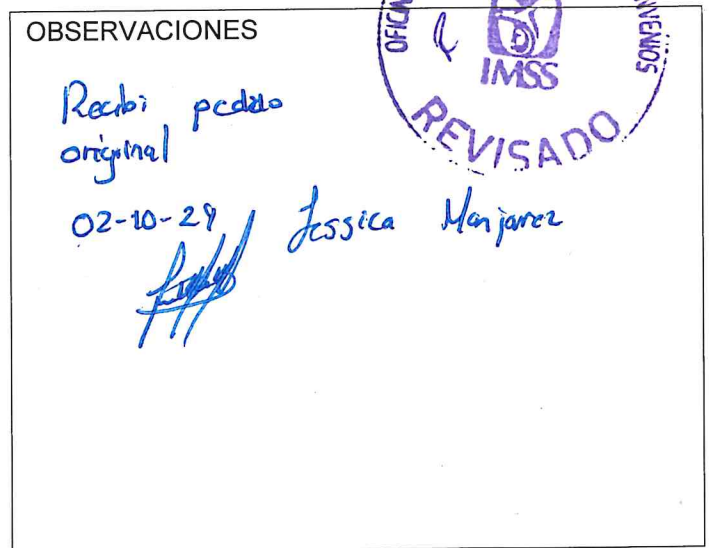 OBSERVACIONES
IMSS
REVISADO
Recibi pedido
original
02-10-24 Jessica Manjarrez